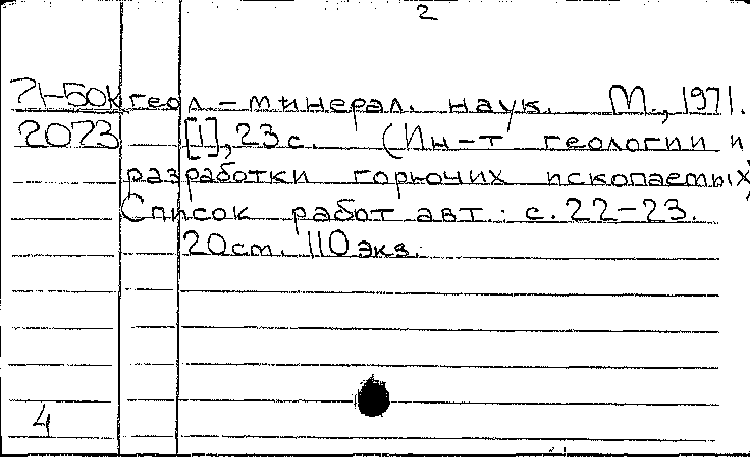 2
71-50к геол-минерал. наук. М., 1971.
2023 [1], 23 с. (Ин-т геологии и
разработки горючих ископаемых)
Список работ авт.: с. 22-23.
20 см. 110 экз.
4